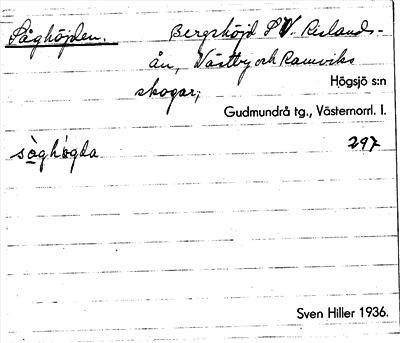 Såghöjden. Bergshöjd S V. Reslands-
ån, Västby och Ramviks
skogar;
Högsjö s:n
Gudmundrå tg., Västernorrl. l.
sòghògda 297
Sven Hiller 1936.